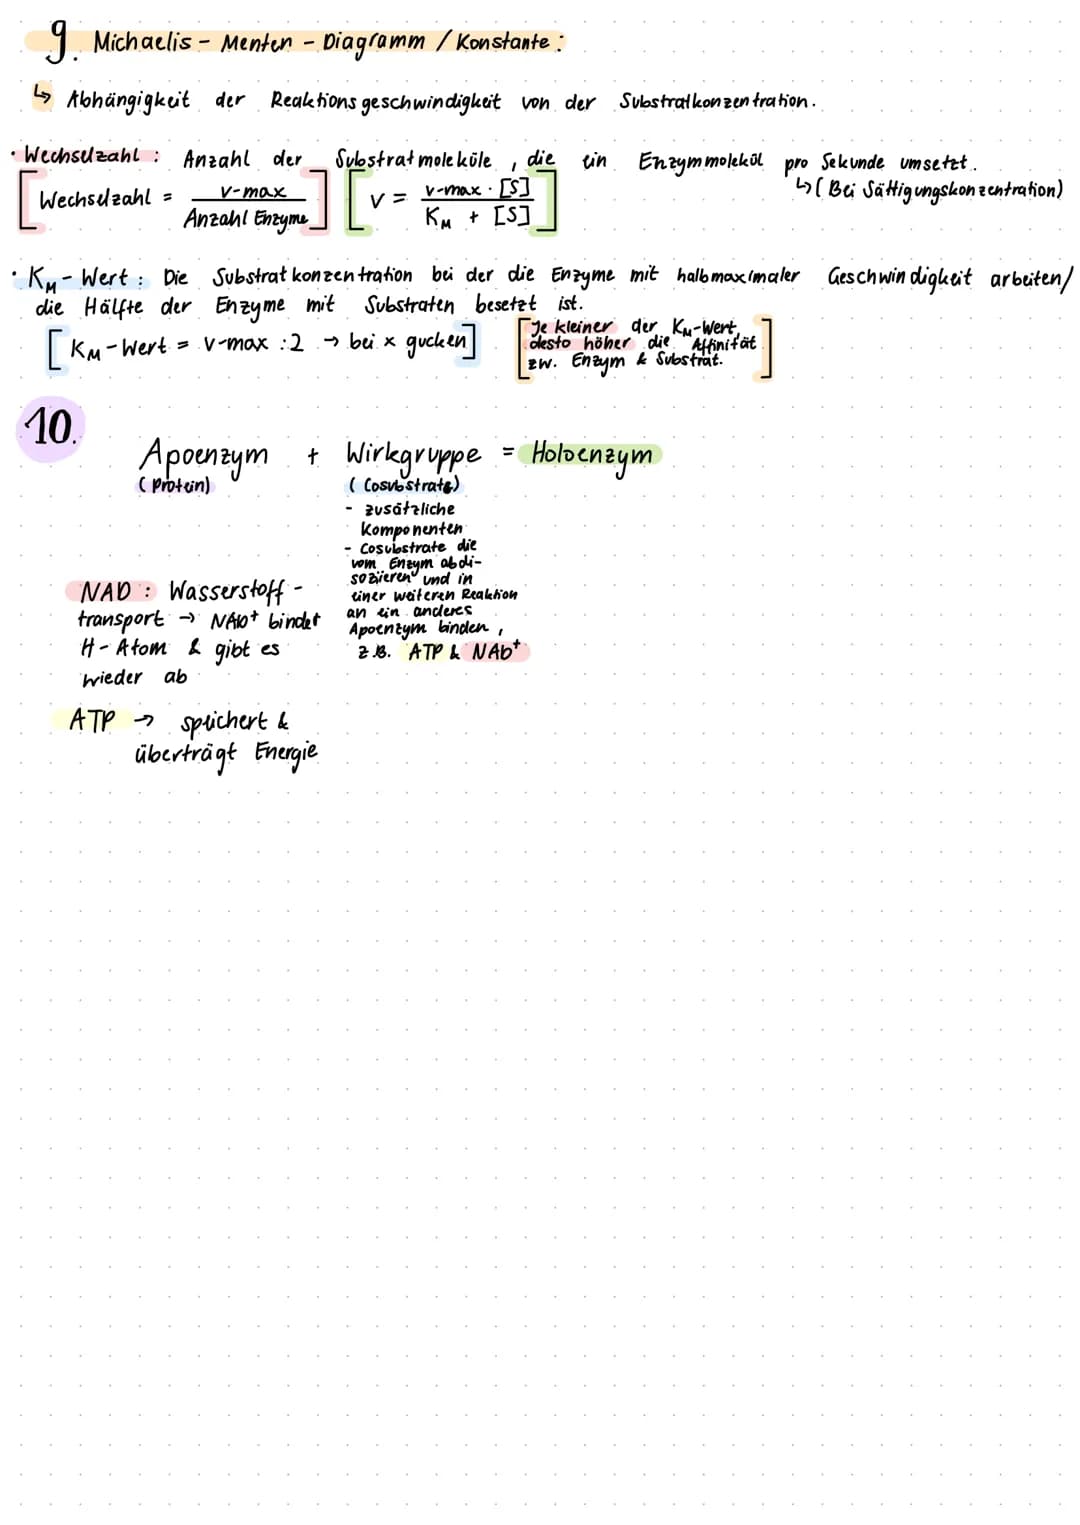 9. Michaelis - Menten - Diagramm / Konstante :
↳ Abhängigkeit der Reaktionsgeschwindigkeit von der Substratkonzentration.
• Wechselzahl : Anzahl der Substratmoleküle , die ein Enzymmolekül pro Sekunde umsetzt.
↳( Bei Sättigungskonzentration)
[ Wechselzahl = v-max / Anzahl Enzyme ] [ v = v-max · [S] / K_M + [S] ]
• K_M - Wert : Die Substratkonzentration bei der die Enzyme mit halbmaximaler Geschwindigkeit arbeiten/
die Hälfte der Enzyme mit Substraten besetzt ist.
[ K_M - Wert = v-max :2 → bei x gucken ]
[ Je kleiner der K_M-Wert,
desto höher die Affinität
zw. Enzym & Substrat. ]
10.
Apoenzym + Wirkgruppe = Holoenzym
( Protein) ( Cosubstrate)
- zusätzliche
Komponenten
- Cosubstrate die
vom Enzym abdi-
sozieren und in
einer weiteren Reaktion
an ein anderes
Apoenzym binden ,
z.B. ATP & NAD⁺
NAD : Wasserstoff -
transport → NAD⁺ bindet
H - Atom & gibt es
wieder ab
ATP → speichert &
überträgt Energie